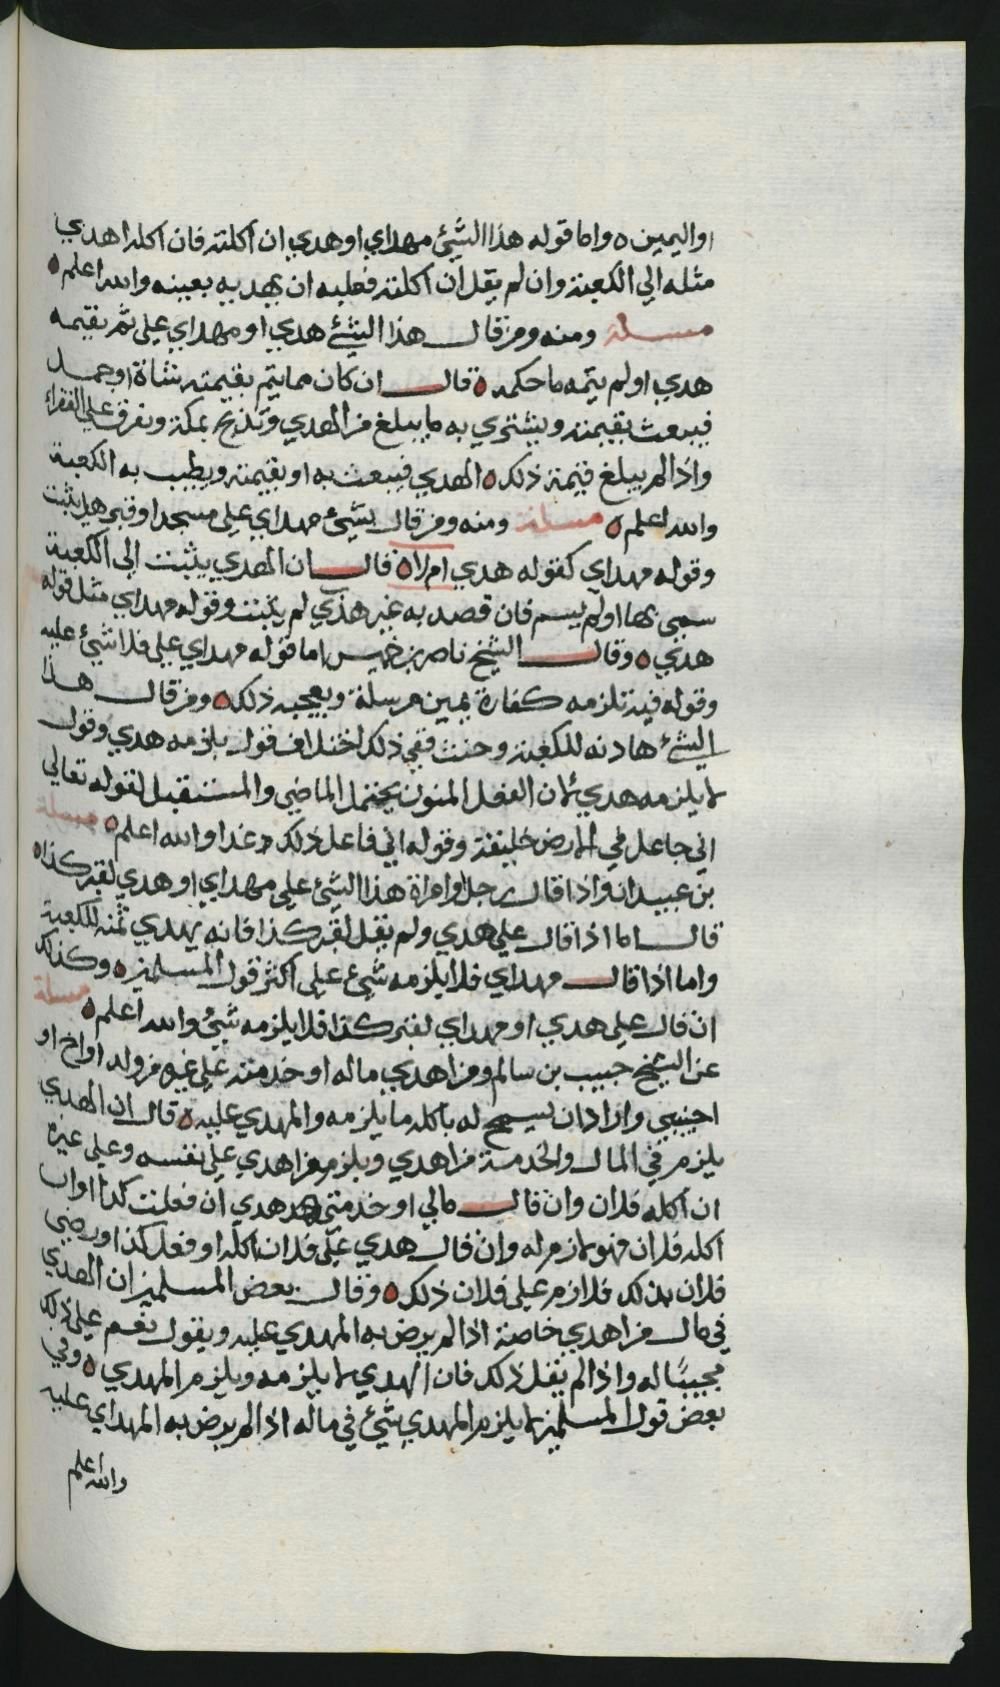 او اليمين ه واما قوله هذا الشيئ مهداي او هدي ان اكلته فان اكله اهدي
مثله الي الكعبة وان لم يقل ان اكلته فعليه ان يهديه بعينه والله اعلم ه
مسلة ومنه ومن قال هذا الشيئ هدي او مهداي علي ثم بقيمه
هدي او لم يتمه ما حكمه ه قال ان كان مما يتم بقيمته شاة او جمل
فيبعث بقيمته ويشتري به ما يبلغ من الهدي وتذبح بمكة وتفرق على الفقراء
واذا لم يبلغ قيمة ذلك ه الهدي فيبعث به او بقيمته ويطيب به الكعبة
والله اعلم ه مسلة ومنه ومن قال بشيئ مهداي على مسجد او قبر هل يثبت
وقوله مهداي كقوله هدي ام لا ه قال ان الهدي يثبت إلى الكعبة
سمى بها او لم يسم فان قصد به غير هذي لم يثبت وقوله مهداي مثل قوله
هدي ه وقال الشيخ ناصر بن خميس اما قوله مهداي علي فلا شيئ عليه
وقوله فيه تلزمه كفارة يمين مرسلة ويعجبه ذلك ه ومن قال هذا
الشئ هادنه للكعبة وحنث ففي ذلك اختلاف قول يلزمه هدي وقول
لا يلزمه هدي لان الفعل المنون يحتمل الماضي والمستقبل لقوله تعالى
اني جاعل في الارض خليفة وقوله اني فاعل ذلك غدا والله اعلم ه مسلة
بن عبيدان واذا قال رجل او امراة هذا الشيئ علي مهداي او هدي لقبر كذا ه
قال اما اذا قال علي هدي ولم يقل لقبر كذا فانه يهدي ثمنه للكعبة
واما اذا قال مهداي فلا يلزمه شيئ على اكثر قول المسلمين ه وكذلك
ان قال علي هدي او مهداي لقبر كذا فلا يلزمه شيئ والله اعلم ه مسلة
عن الشيخ حبيب بن سالم ومن اهدي ماله او خدمته على غيره من ولد او اخ او
اجنبي واراد ان يسمح له باكله ما يلزمه والمهدي عليه ه قال ان الهدي
يلزم في المال والخدمة من اهدي ويلزم من اهدي على نفسه وعلى غيره
ان اكله فلان وان قال مالي او خدمتي هدي ان فعلت كذا او ان
اكله فلان فهو لازم له وان قال هدي علي فلان ان اكله او فعل كذا او رضي
فلان بذلك فلا لازم على فلان ذلك ه وقال بعض المسلمين ان الهدي
في مال من اهدي خاصة اذا لم يرض به المهدي عليه ويقول نعم علي ذلك
مجيبًا له واذا لم يقل ذلك فان الهدي لا يلزمه ويلزم المهدي ه وفي
بعض قول المسلمين لا يلزم المهدي شيئ في ماله اذا لم يرض به المهداي عليه
والله اعلم